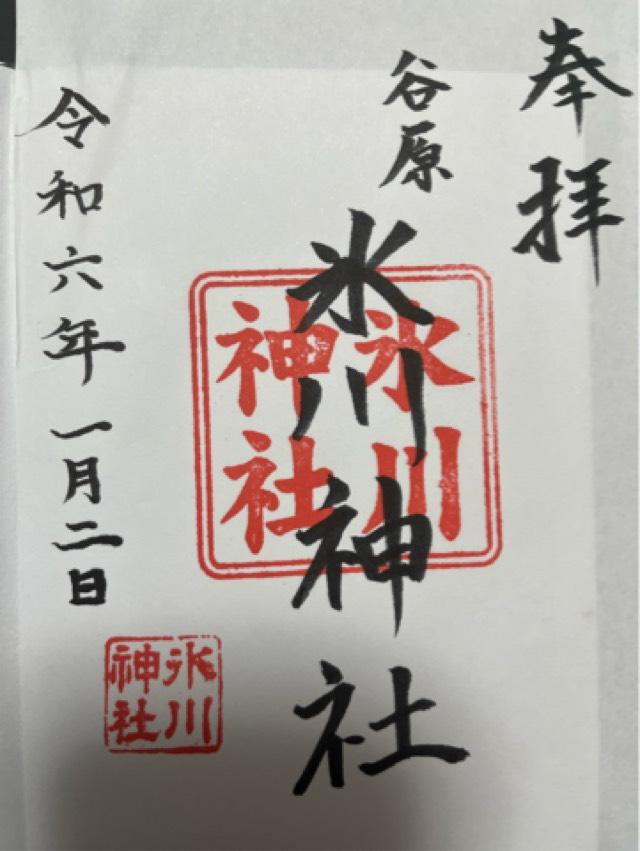 奉拝
谷原
氷川神社
氷川
神社
令和六年一月二日
氷川
神社